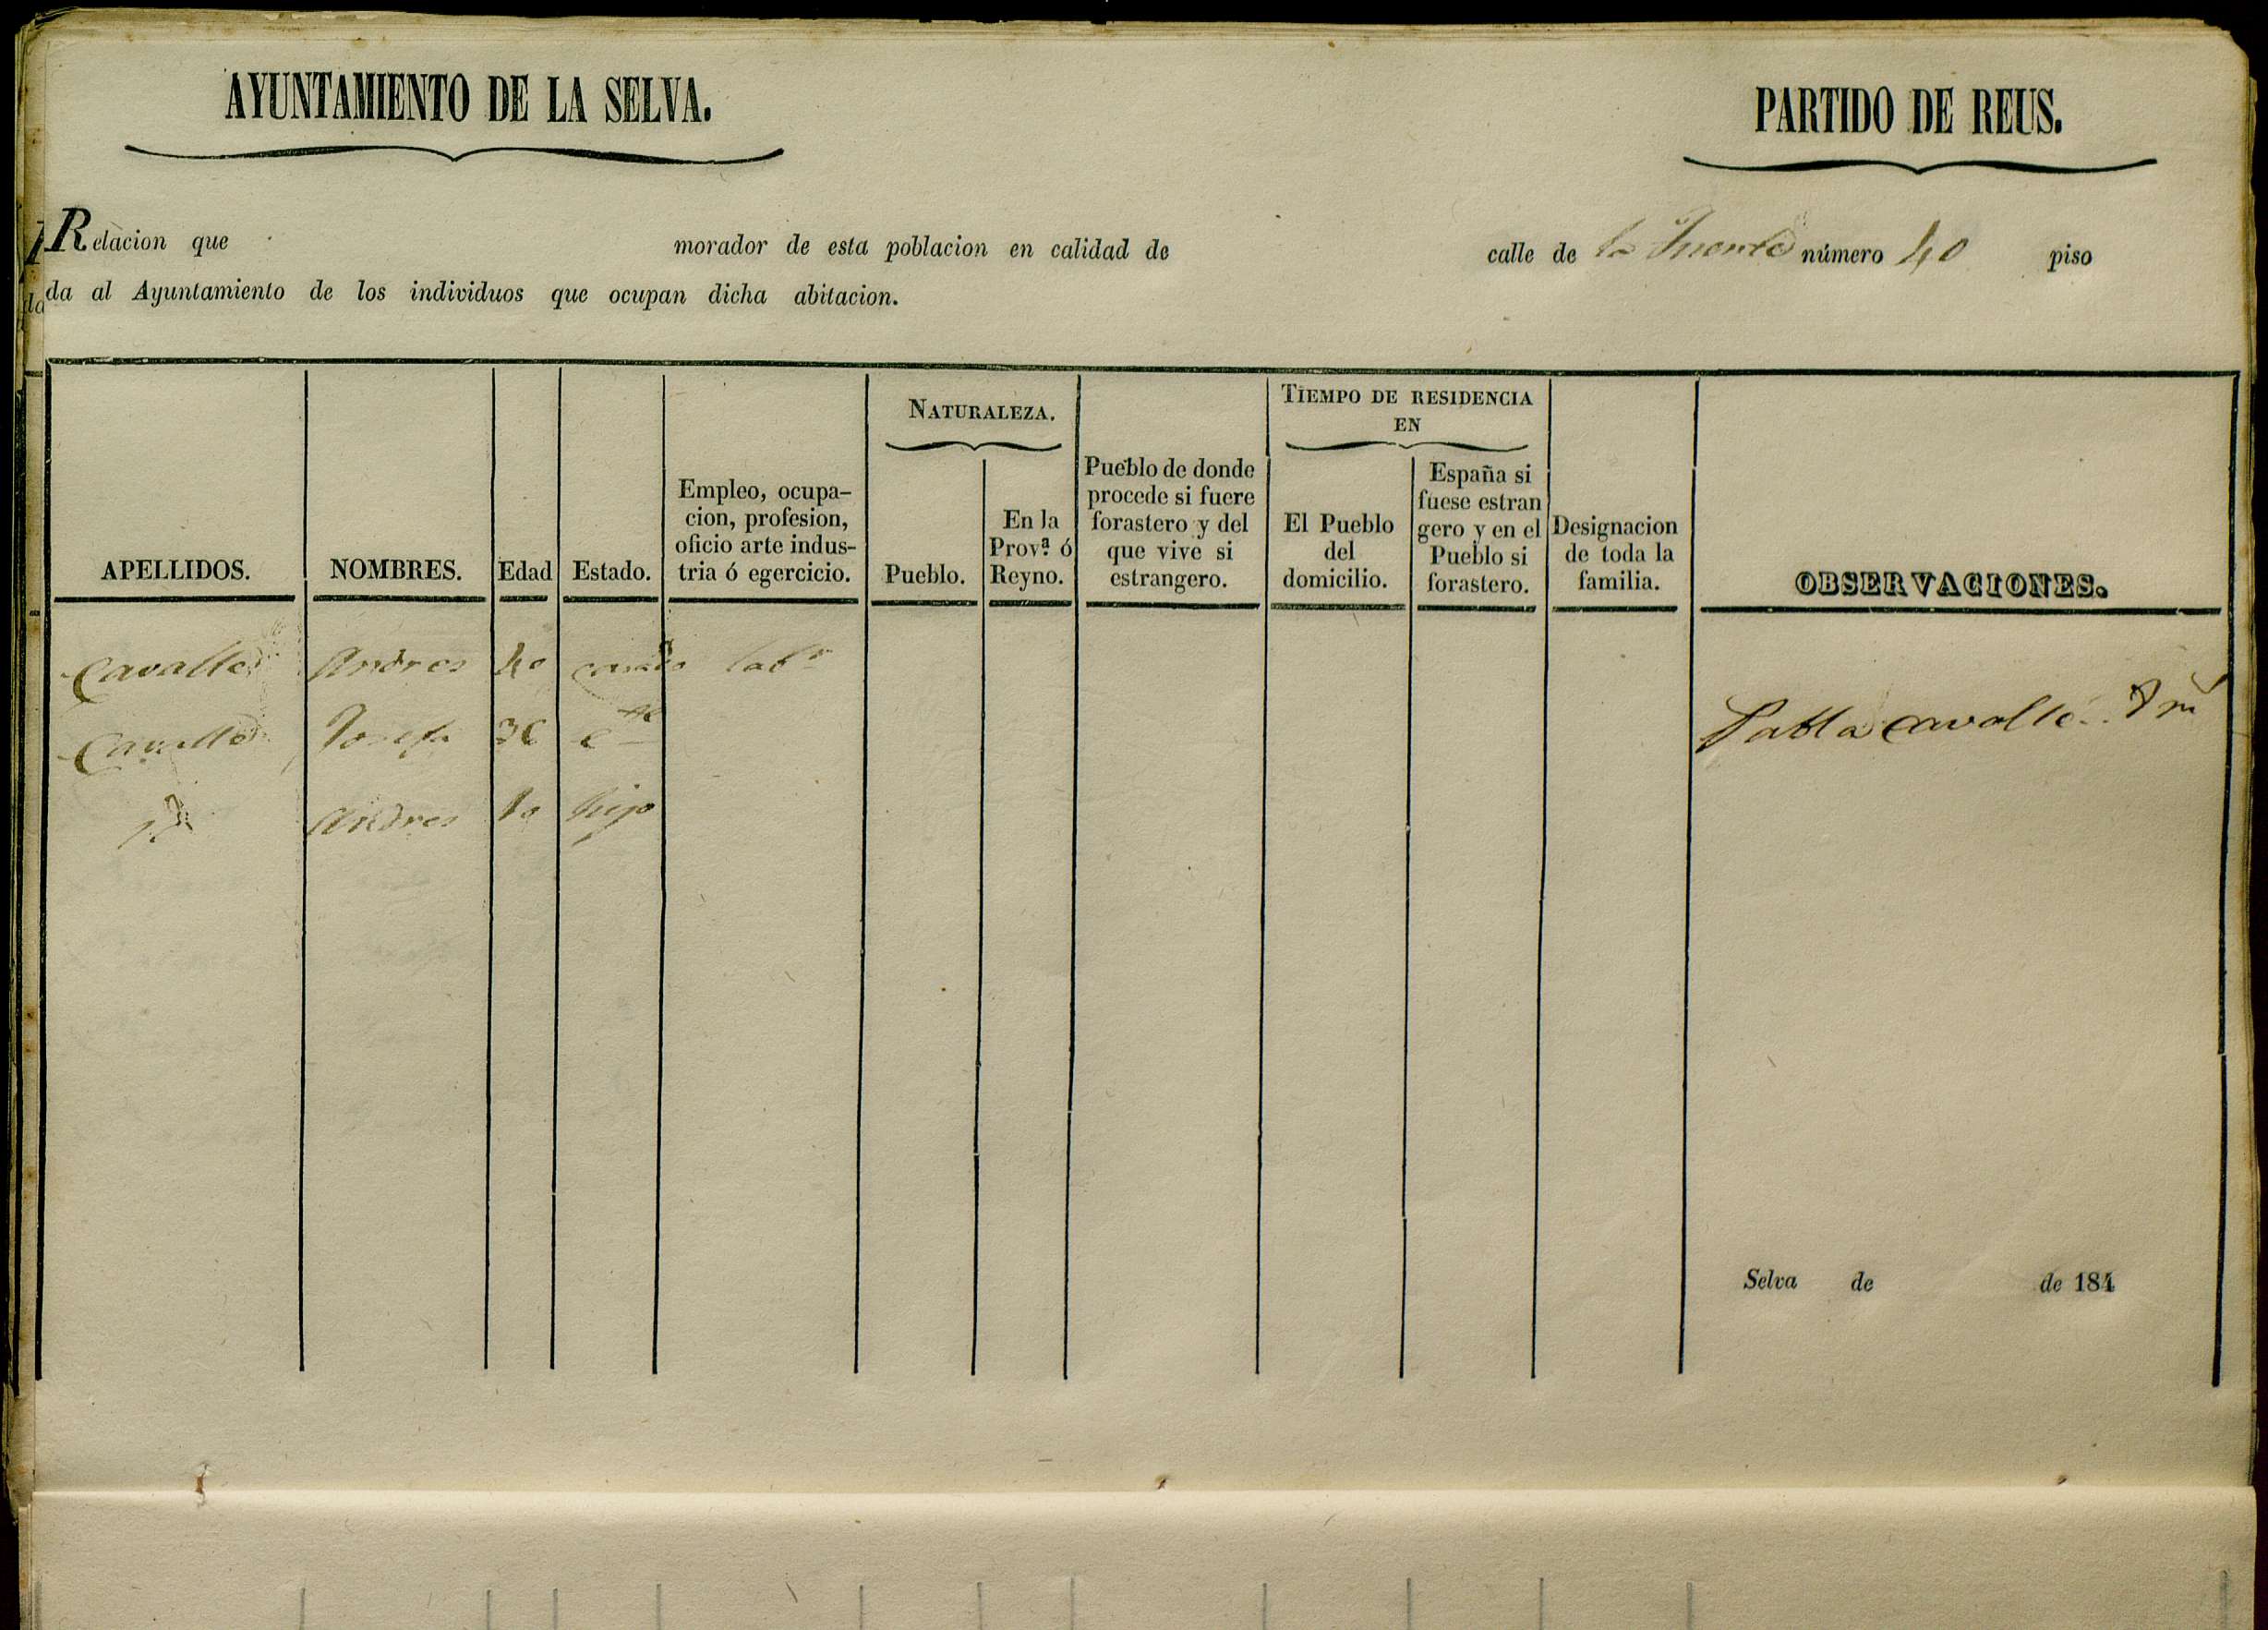 AYUNTAMIENTO DE LA SELVA.
PARTIDO DE REUS.
Relacion que morador de esta poblacion en calidad de calle de la Fuente número 40 piso
da al Ayuntamiento de los individuos que ocupan dicha abitacion.
APELLIDOS.
NOMBRES.
Edad
Estado.
Empleo, ocupa-
cion, profesion,
oficio arte indus-
tria ó egercicio.
NATURALEZA.
Pueblo.
En la
Prov.ª ó
Reyno.
Pueblo de donde
procede si fuere
forastero y del
que vive si
estrangero.
TIEMPO DE RESIDENCIA
EN
El Pueblo
del
domicilio.
España si
fuese estran
gero y en el
Pueblo si
forastero.
Designacion
de toda la
familia.
OBSERVACIONES.
Cavalle Andres 40 casado labr
Cavalle Josefa 36
Andres 10 hijo
cavalle
Selva de de 184